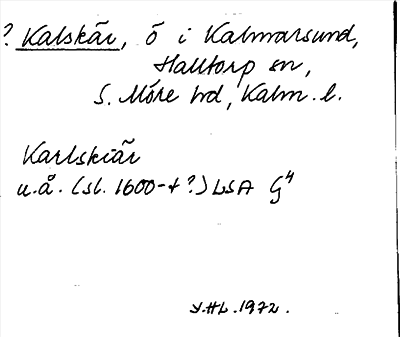 ? Kalskär, ö i Kalmarsund,
Halltorp sn,
S. Möre hd, Kalm. l.
Karlskiär
u.å. (sl. 1600-t?) LSA G4
Y.HL.1972.